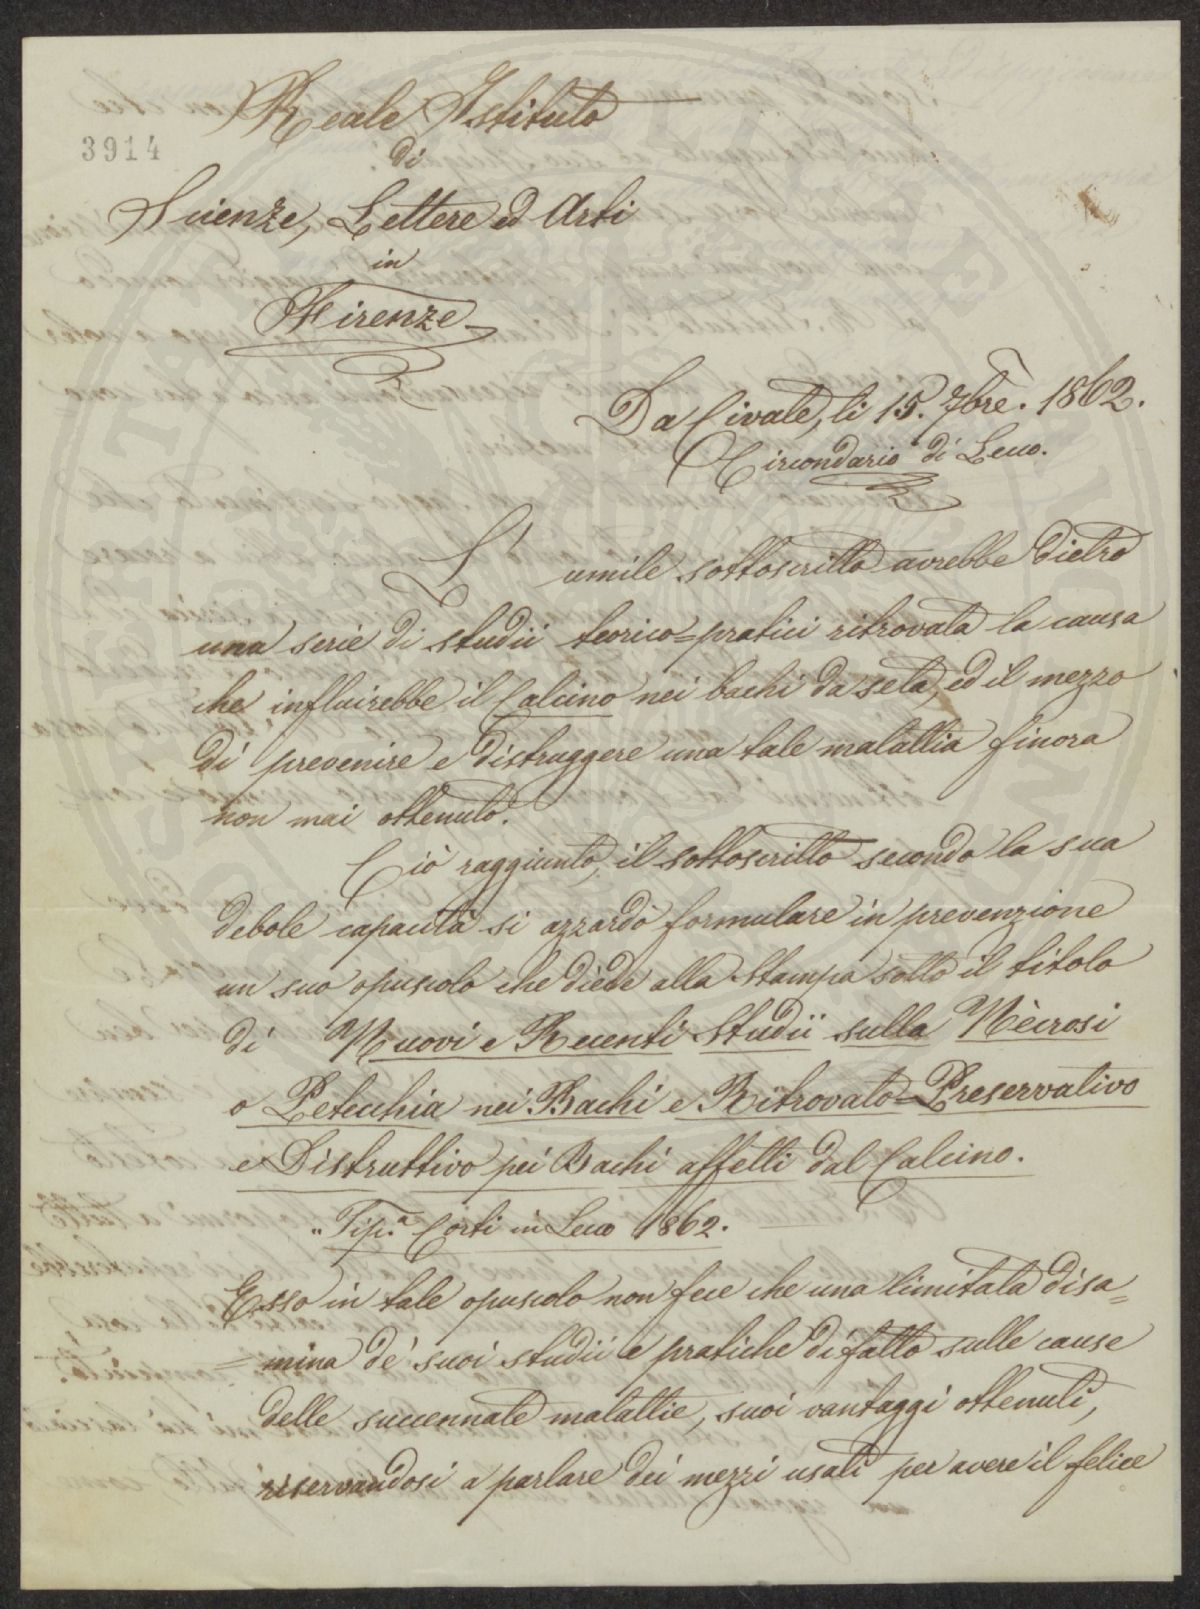 3914
Reale Istituto
di
Scienze, Lettere ed Arti
in
Firenze
Da Civate, li 15. 7bre. 1862.
Circondario di Lecco.
L'umile sottoscritto avrebbe dietro
una serie di studii teorico=pratici ritrovata la causa
che influirebbe il Calcino nei bachi da seta, ed il mezzo
di prevenire e distruggere una tale malattia finora
non mai ottenuto.
Ciò raggiunto, il sottoscritto secondo la sua
debole capacità si azzardò formulare in prevenzione
un suo opuscolo che diede alla stampa sotto il titolo
di Nuovi e Recenti Studii sulla Nècrosi
o Petecchia nei Bachi e Ritrovato=Preservativo
e Distruttivo pei Bachi affetti dal Calcino.
„Tip.a Corti in Lecco 1862.
Esso in tale opuscolo non fece che una limitata disa=
=mina de' suoi studii e pratiche di fatto sulle cause
delle succennate malattie, suoi vantaggi ottenuti,
riservandosi a parlare dei mezzi usati per avere il felice